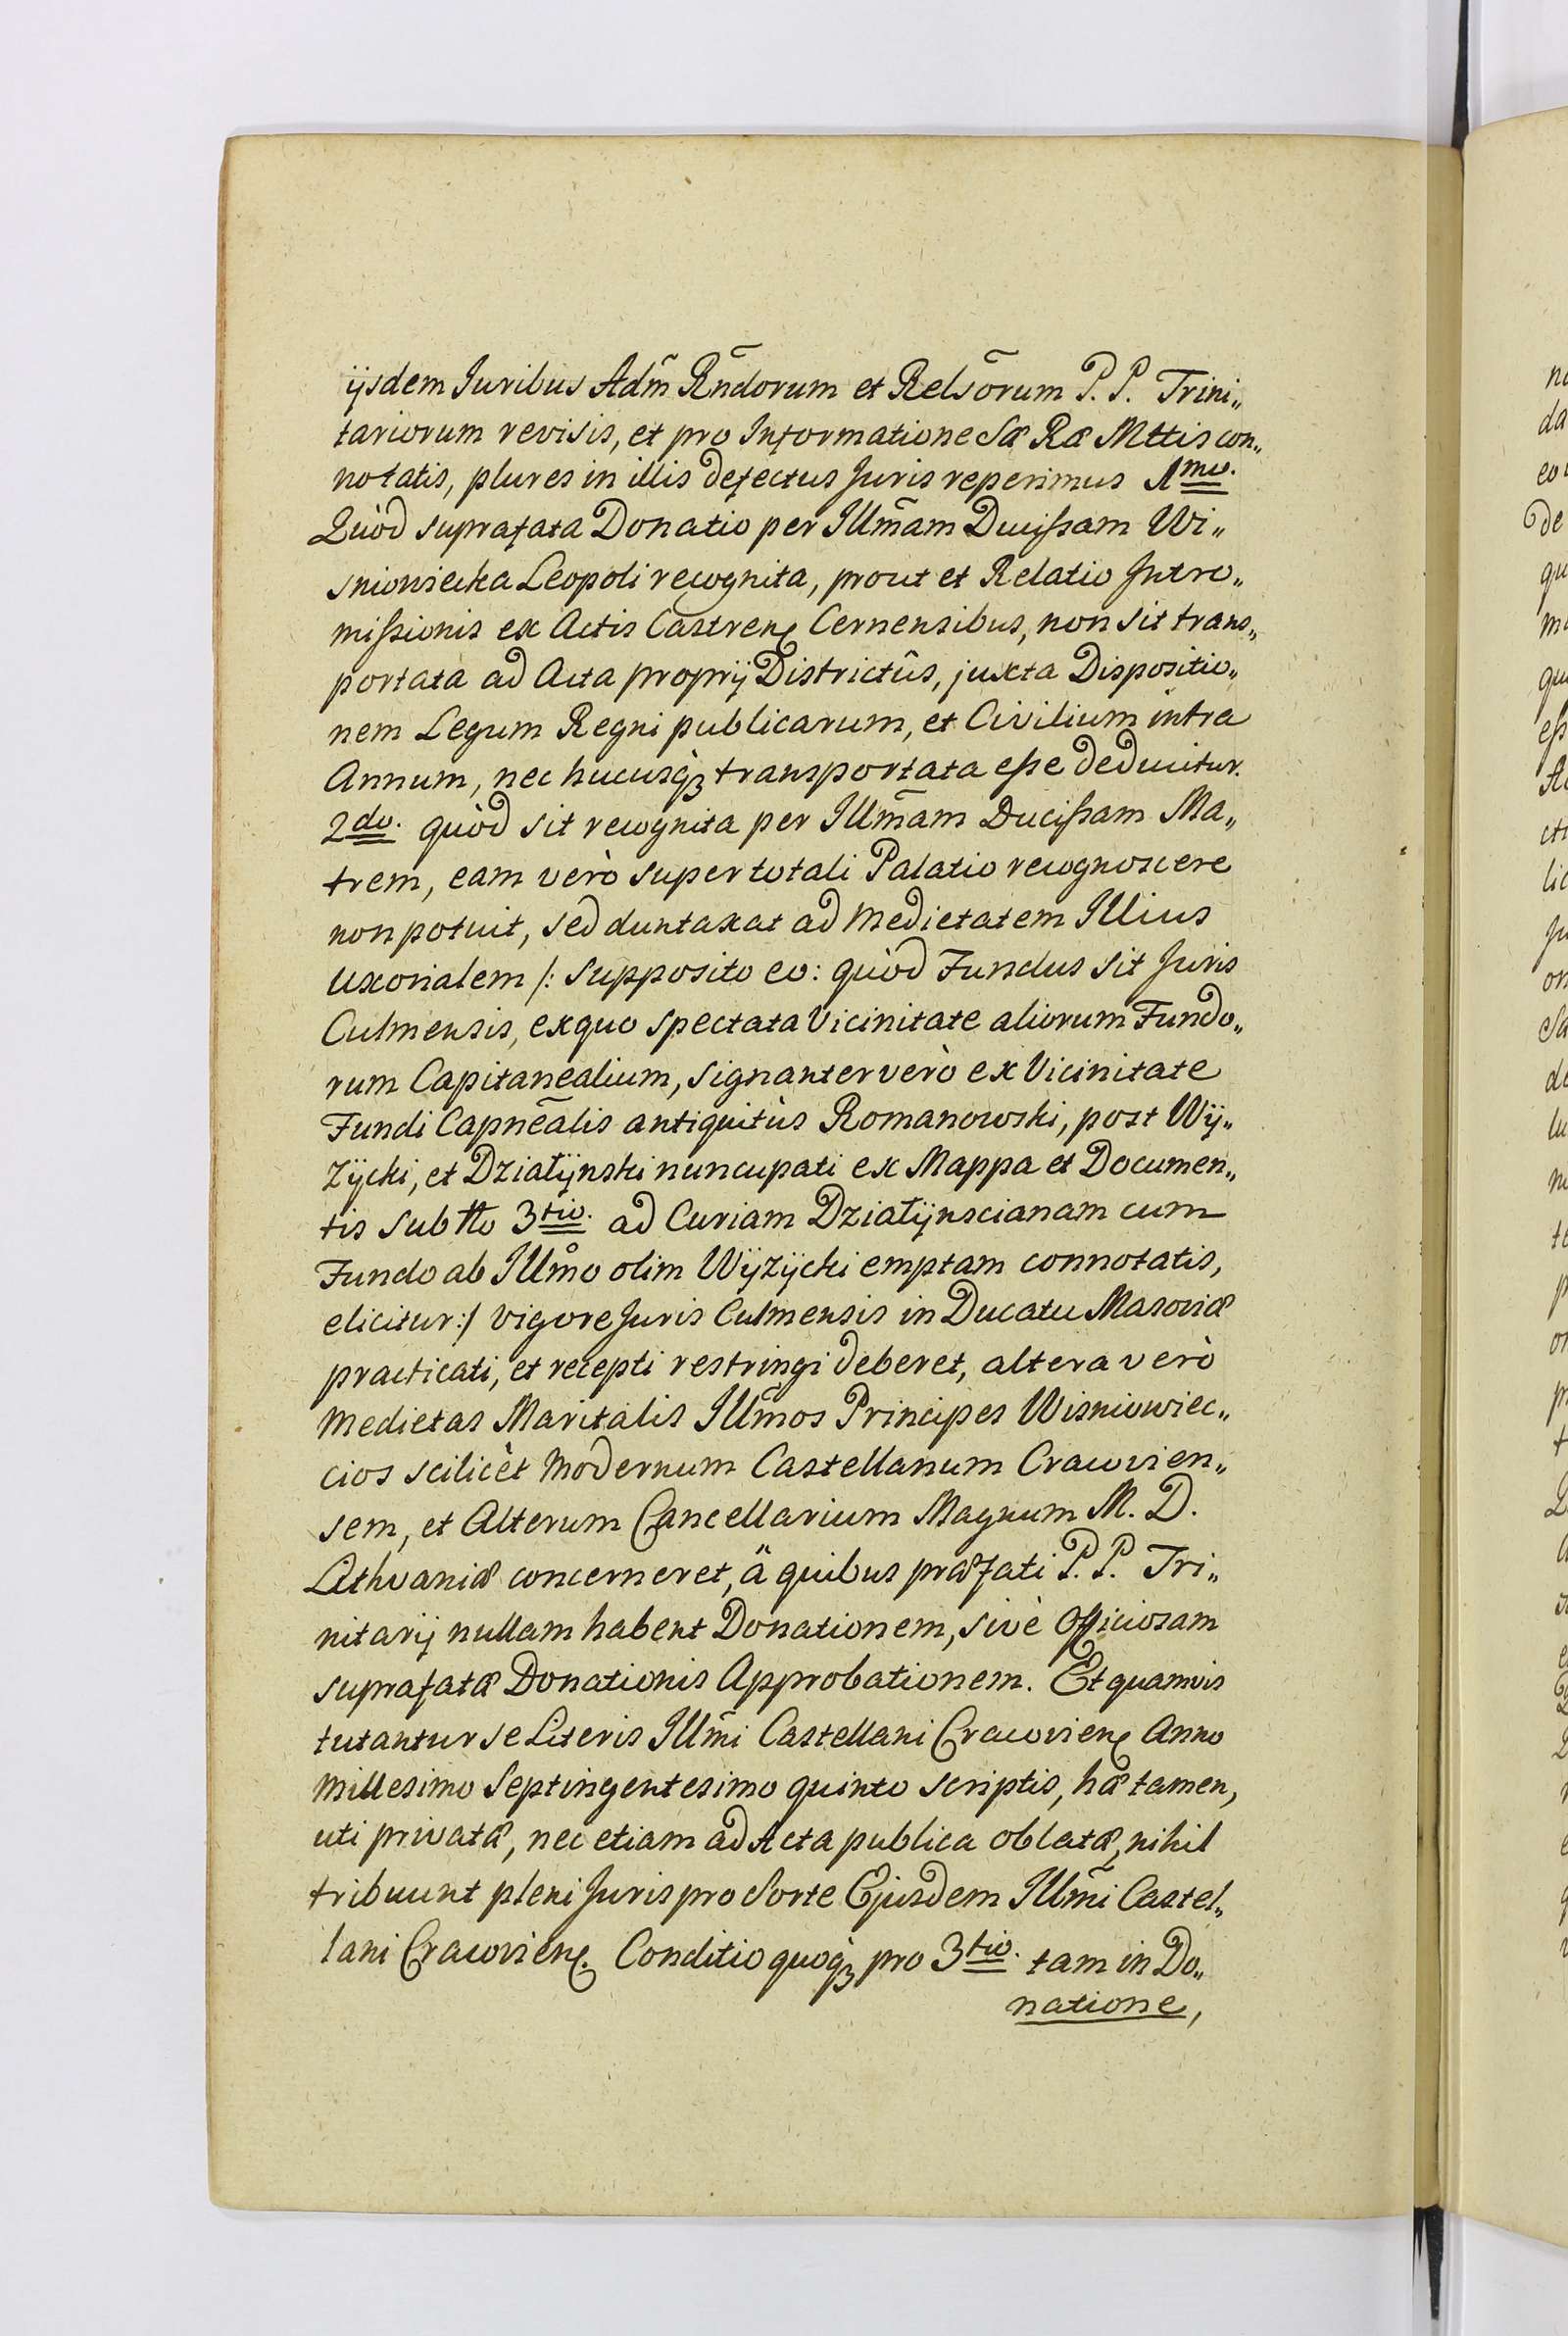 ijsdem Juribus Adm̃ Rñdorum et Relsõrum P. P. Trini„
tariorum revisis, et pro Informatione Sæ Ræ Mttis con„
notatis, plures in illis defectus Juris reperimus 1mo.
Quòd suprafata Donatio per Illm̃am Ducißam Wi„
sniowiecka Leopoli recognita, prout et Relatio Intro„
mißionis ex Actis Castren̨ Cernensibus, non sit trans„
portata ad Acta proprij Districtûs, juxta Dispositio„
nem Legum Regni publicarum, et Civilium intra
Annum, nec hucusq̀ꝫ transportata eße deducitur.
2do. quòd sit recognita per Illm̃am Ducißam Ma„
trem, eam verò super totali Palatio recognoscere
non potuit, sed duntaxat ad Medietatem Illius
uxorialem /: supposito eo: quòd Fundus sit Juris
Culmensis, ex quo spectata Vicinitate aliorum Fundo„
rum Capitanealium, signanter verò ex Vicinitate
Fundi Capnẽalis antiquitùs Romanowski, post Wÿ„
zÿcki, et Działÿnski nuncupati ex Mappa et Documen„
tis sub tto 3tio. ad Curiam Działÿnscianam cum
Fundo ab Illm̊o olim Wÿzÿcki emptam connotatis,
elicitur:/ vigore Juris Culmensis in Ducatu Masoviæ
practicati, et recepti restringi deberet, altera verò
Medietas Maritalis Illm̃os Principes Wisniowiec„
cios scilicèt Modernum Castellanum Cracovien„
sem, et Alterum Cancellarium Magnum M. D.
Lithvaniæ concerneret, ä quibus præfati P. P. Tri„
nitarij nullam habent Donationem, sivè Officiosam
suprafatæ Donationis Approbationem. Et quamvis
tutantur se Literis Illm̃i Castellani Cracovien̨ Anno
Millesimo Septingentesimo quinto scriptis, hæ tamen,
uti privatæ, nec etiam ad Acta publica oblatæ, nihil
tribuunt pleni Juris pro Sorte Ejusdem Illm̃i Castel„
lani Cracovien̨. Conditio quoq̀ꝫ pro 3tio. tam in Do„
natione,